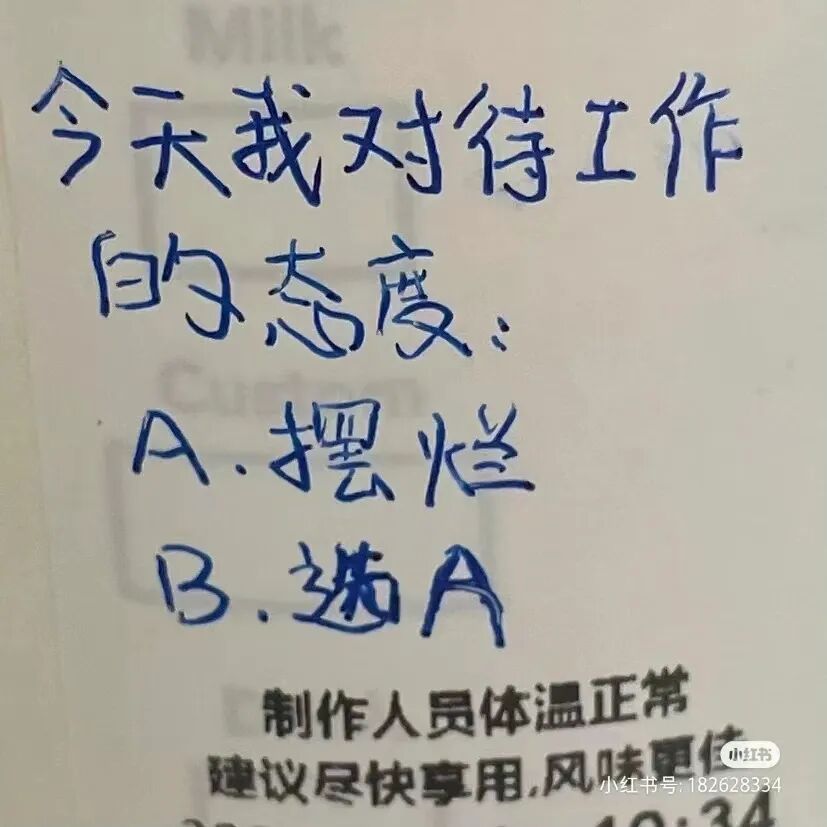 Milk
今天我对待工作
的态度:
Custom
A.摆烂
B.选A
制作人员体温正常
建议尽快享用,风味更佳
小红书
小红书号: 182628334
10:34